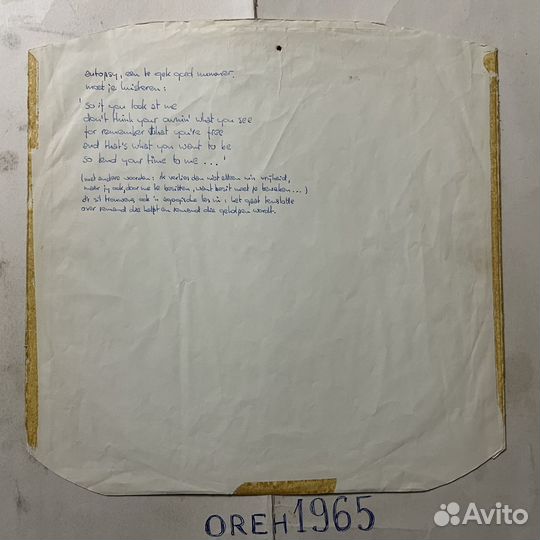 autopsy, een te gek goed nummer.
moet je luisteren:
'so if you look at me
don't think you're ownin' what you see
for remember that you're free
and that's what you want to be
so lend your time to me ...'
(met andere woorden: ik verlies dan niet alleen m'n vrijheid,
maar jij ook, door me te bezitten, want bezit moet je bewaken ...)
dr zit trouwens ook 'n agogische les in: het gaat tenslotte
over iemand die helpt en iemand die geholpen wordt.
OREH1965
Avito